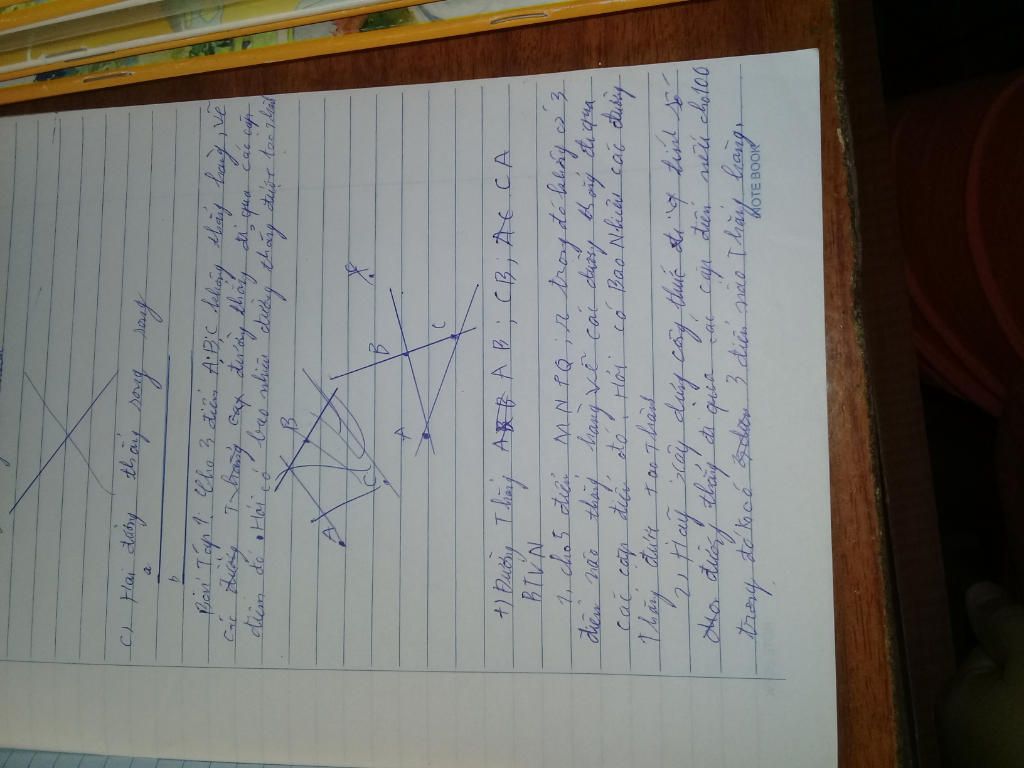 c) Hai đường thẳng song song
a
b
Bài Tập 1. Cho 3 điểm A.B.C không thẳng hàng, vẽ
các đường Thẳng đi qua các cặp
điểm đó. Hỏi có bao nhiêu đường thẳng được tạo thành
A B C
A B C
+) Đường Thẳng A B; CB; CA
BTVN
1, cho 5 điểm M N P Q, R trong đó không có 3
điểm nào thẳng hàng vẽ các đường thẳng đi qua
các cặp điểm đó. Hỏi có Bao Nhiêu các đường
Thẳng được tạo thành
2, Hãy xây dựng công thức để tính số
đường thẳng đi qua các cặp điểm nếu cho 100
trong đó ko có 3 điểm nào Thẳng hàng.
NOTEBOOK